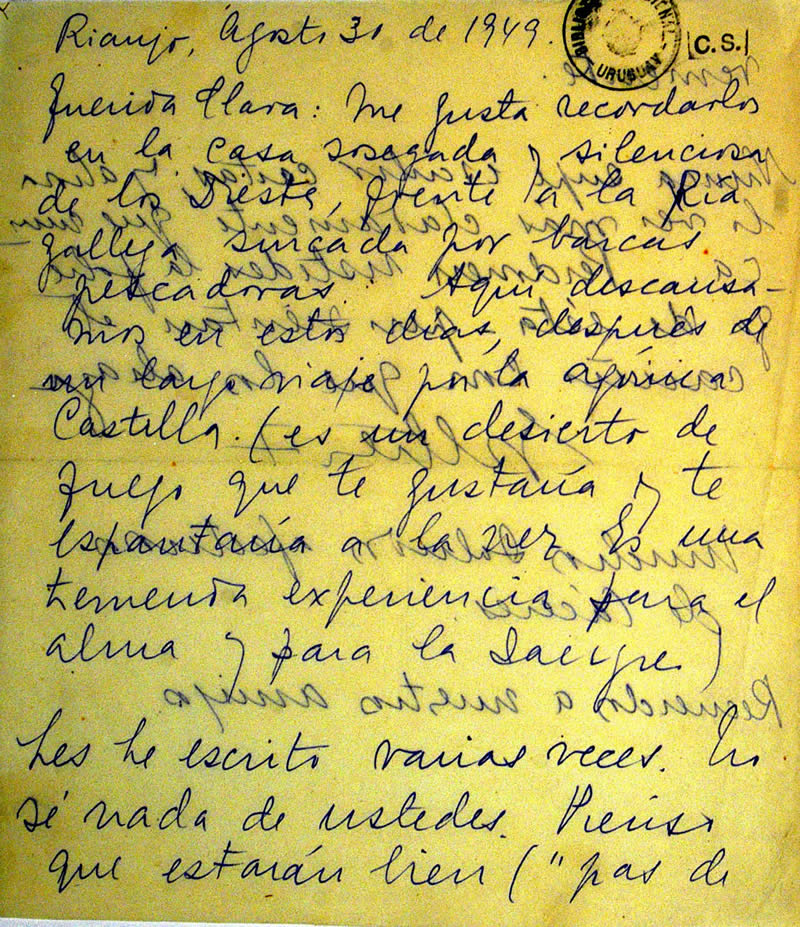 Rianjo, Agosto 30 de 1949.
C.S.
URUGUAY
Querida Clara: Me gusta recordarlos
en la casa sosegada y silenciosa
de los Dieste, frente a la Ría
gallega surcada por barcas
pescadoras. Aquí descansa-
mos en estos días, después de
un largo viaje por la agónica
Castilla. (es un desierto de
fuego que te gustaría y te
espantaría a la vez. Es una
tremenda experiencia para el
alma y para la sangre.)
Les he escrito varias veces. No
sé nada de ustedes. Pienso
que estarán bien ("pas de